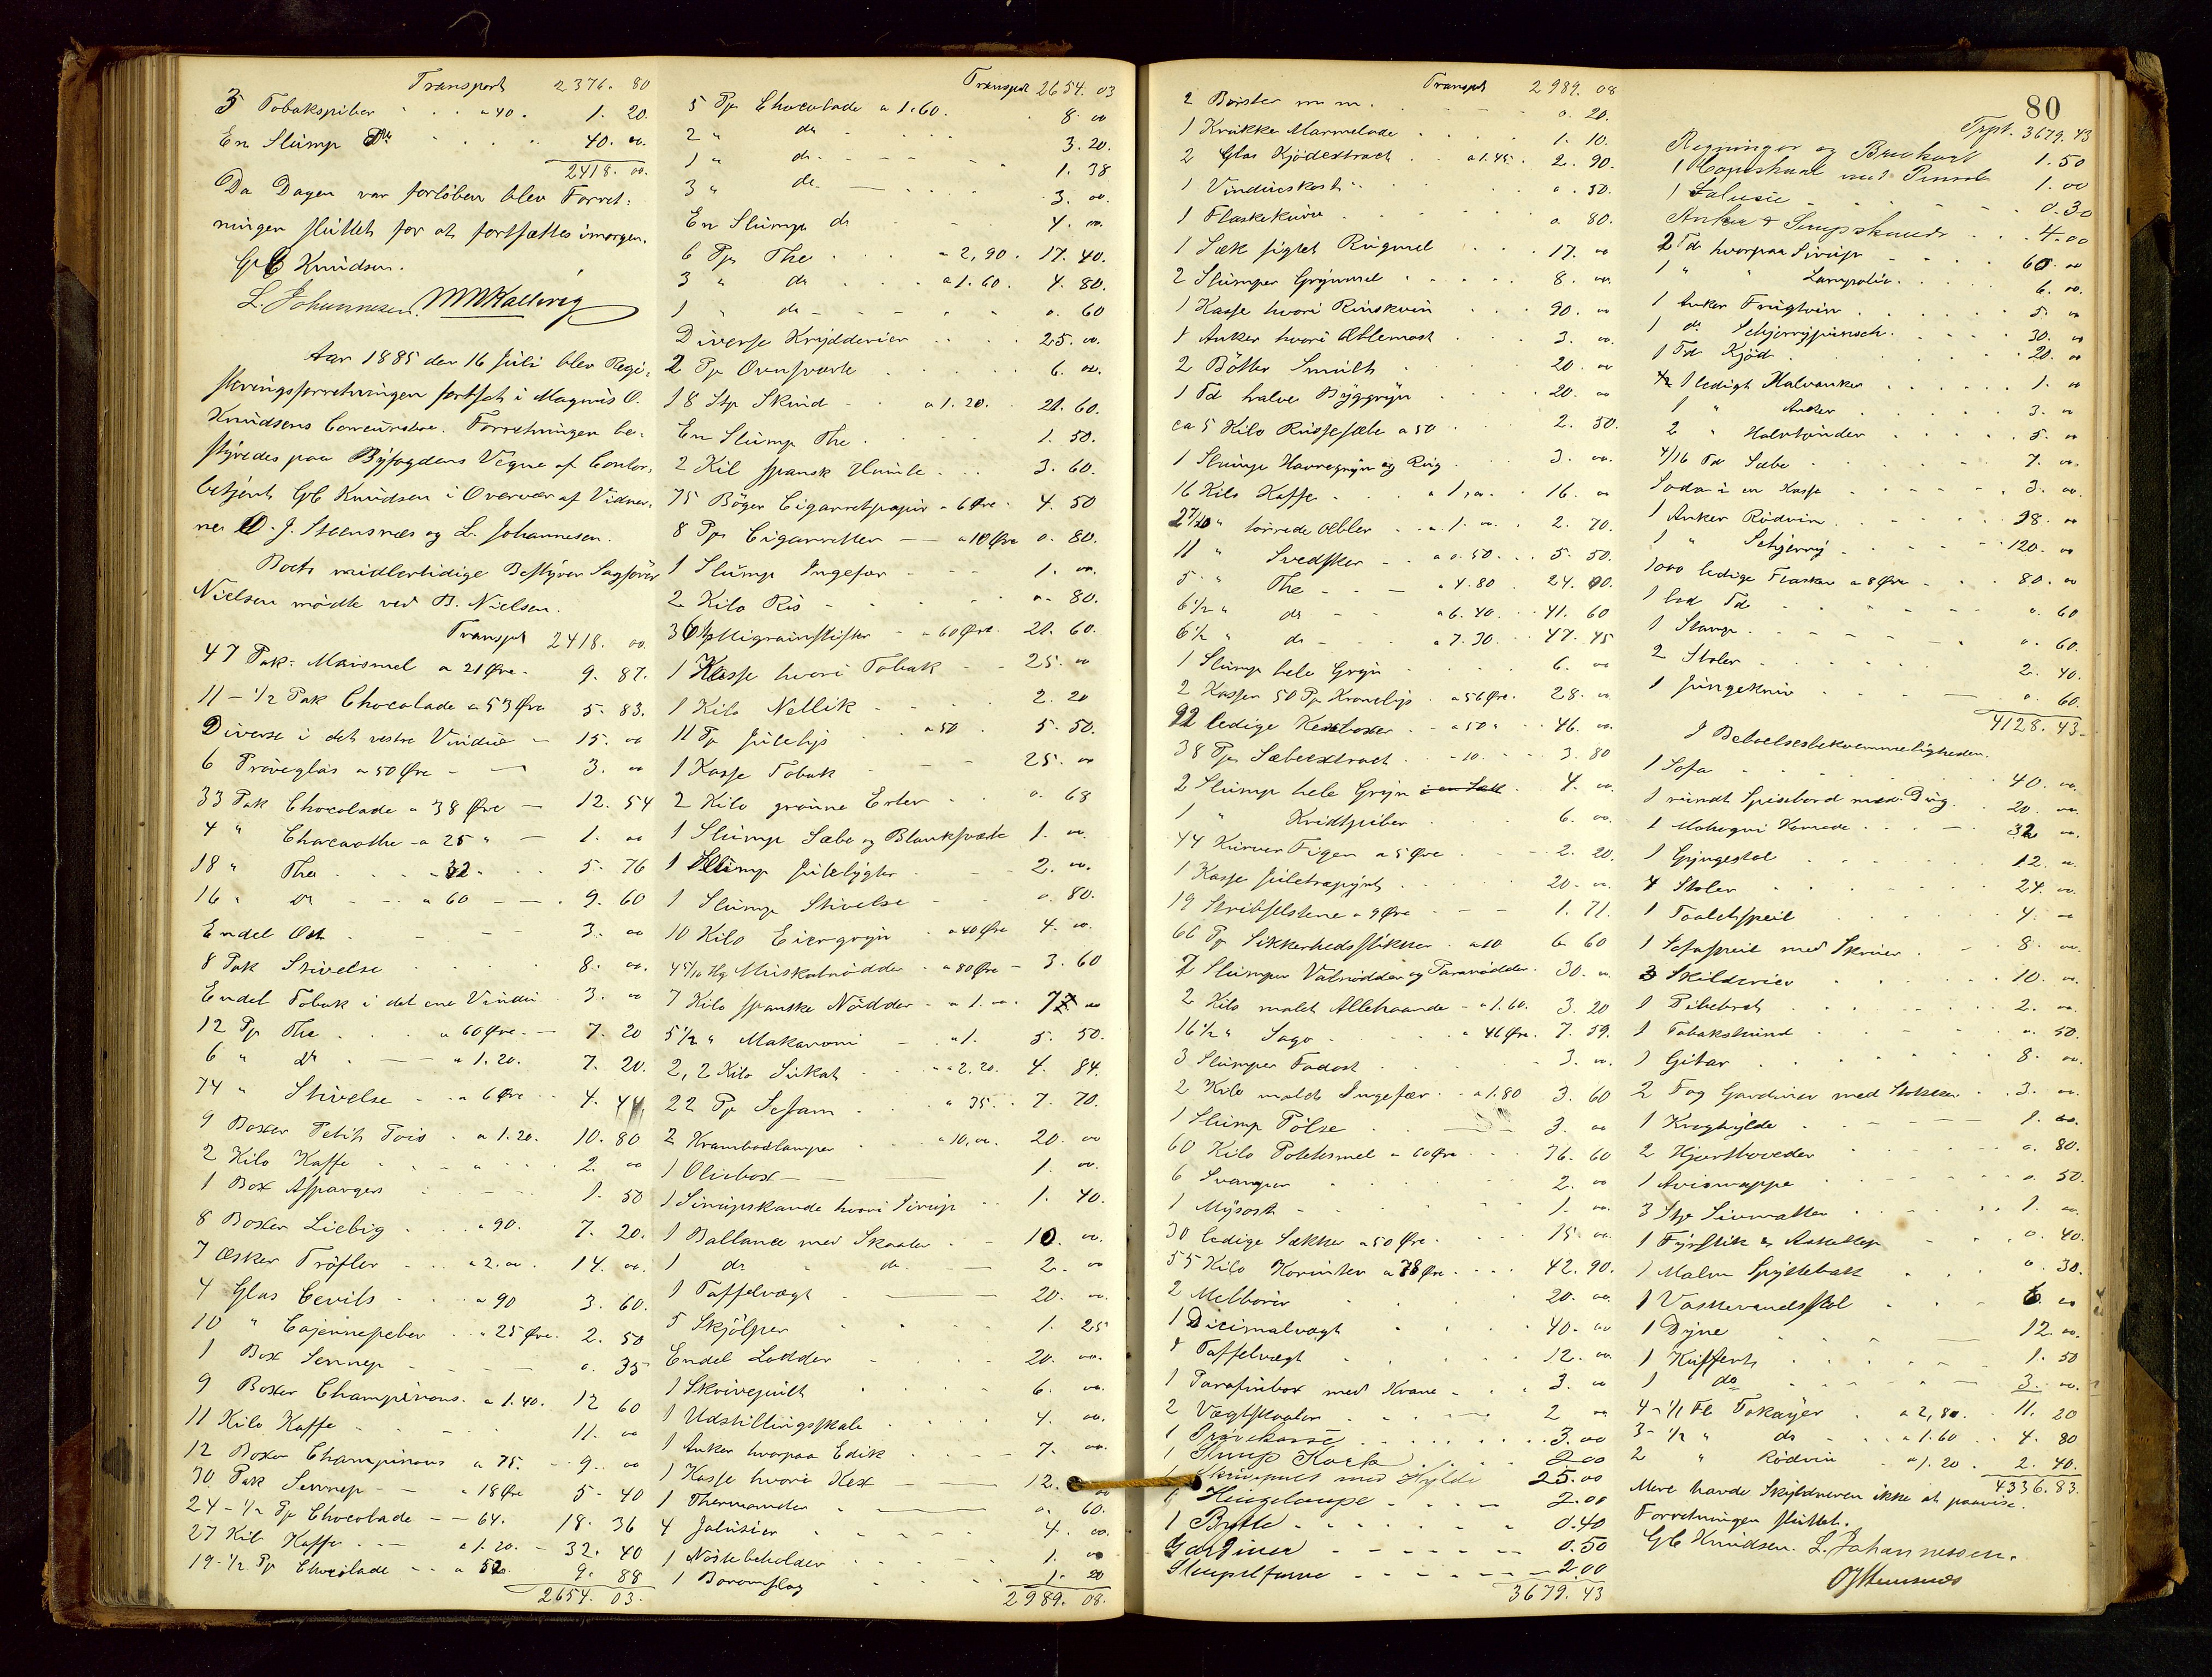 Transport 2376. 80
3 Tobakspiber " a 40. 1. 20.
En Slump Do 40. 00.
2418. 00.
Da Dagen var forløben blev Forret-
ningen sluttet for at fortsættes imorgen.
GC Knudsen.
L. Johannesen. MMKallevig
Aar 1885 den 16 Juli blev Regi-
streringsforretningen fortsat i Magnus O.
Knudsens Concursboe. Forretningen be-
styredes paa Byfogdens Vegne af Contor-
betjent GC Knudsen i Overvær af Vidner-
ne O. J. Steensnæs og L. Johannesen.
Boets midlertidige Bestyrer Sagfører
Nielsen mødte ved B. Nielsen.
Transpt 2418. 00
47 Pak. Maismel a 21 Øre. 9. 87.
11 - 1/2 Pak Chocolade a 53 Øre 5. 83.
Diverse i det vestre Vindue - 15. 00
6 Prøveglas a 50 Øre - 3. 00
33 Pak Chocolade a 38 Øre - 12. 54
4 " Chocaothe - a 25 " - 1. 00
18 " The - a 32 - 5. 76
16 " do - a 60 - 9. 60
Endel Ost - 3. 00
8 Pak Stivelse 8. 00.
Endel Tobak i det ene Vindu 3. 00
12 Pp The a 60 Øre. - 7. 20
6 " do - a 1.20. 7. 20.
74 " Stivelse - a 6 Øre 4. 44
9 Boxer Petit Pois a 1.20. 10. 80
2 Kilo Kaffe 2. 00
1 Box Asparges 1. 50
8 Boxer Liebig a 90. 7. 20.
7 Æsker Trøfler a 2.00. 14. 00.
4 Glas Cevils a 90 3. 60.
10 " Cajennepeber a 25 Øre. 2. 50
1 Box Sennep 0. 35
9 Boxer Champinons. a 1.40. 12 60
11 Kilo Kaffe 11. 00
12 Boxer Champinons a 75. - 9. 00
30 Pak Sennep - a 18 Øre 5. 40
24 - 1/2 Pp Chocolade - 64. 18. 36
27 Kilo Kaffe - a 1.20. - 32. 40
19 - 1/2 Pp Chocolade - a 52 9. 88
2654. 03.
Transpt 2654. 03
5 Pp Chocolade a 1.60. 8. 00
2 " do 3. 20.
1 " do. 1. 38
3 " do 3. 00.
En Slump do 4. 00.
6 Pp The a 2,90. 17. 40.
3 " do a 1.60. 4. 80.
1 do 0. 60
Diverse Krydderier 25. 00.
2 Pp Ovnsværte 6. 00.
18 Stp Skind a 1.20. 21. 60.
En Slump The 1. 50.
2 Kil spansk Humle 3. 60.
75 Bøger Cigarretpapir a 6 Øre 4. 50
8 Pps Cigarretter a 10 Øre 0. 80.
1 Slump Ingefær 1. 00.
2 Kilo Ris 0. 80.
36 Stp Migrainstifter a 60 Øre. 21. 60.
1 Kasse hvori Tobak 25. 00
1 Kilo Nellik 2. 20
11 Pp Julelys a 50 5. 50.
1 Kasse Tobak 25. 00
2 Kilo grønne Erter 0. 68
1 Slump Sæbe og Blanksværte 1. 00.
1 Slump Julelygter 2. 00.
1 Slump Stivelse 0. 80.
10 Kilo Eiergryn a 40 Øre 4. 00.
4 5/10 Hg Muskatnødder a 80 Øre - 3. 60
7 Kilo spanske Nødder a 1.00. 7 00
5 1/2 " Makaroni a 1. 5. 50.
2, 2 Kilo Sukat a 2.20. 4. 84.
22 Pp Sesam a 35. 7. 70.
2 Krambodlamper a 10,00. 20. 00
1 Oliebox 1. 00.
1 Sirupskande hvori Sirup 1. 40.
1 Ballance med Skaaler 10. 00.
1 do " do. 2. 00
1 Taffelvægt 20. 00.
5 Skjølper 1. 25
Endel Lodder 20. 00.
1 Skrivepult 6. 00.
1 Udstillingsskab 4. 00.
1 Anker hvorpaa Edik 7. 00.
1 Kasse hvori Kex 12. 00
1 Thermander 0. 60.
4 Jalusier 4. 00.
1 Nøstebeholder 1. 00
1 Boromslag 1. 20
2989. 08.
Transpt 2989. 08
2 Børster m m. 0. 20.
1 Krukke Marmelade 1. 10.
2 Glas Kjødextract a 1.45. 2. 90.
1 Vindueskost 0. 50.
1 Flaskekurv 0. 80.
1 Sæk sigtet Rugmel 17. 00
2 Slumper Grynmel 8. 00
1 Kasse hvori Rinskvin 90. 00
1 Anker hvori Æblemost 3. 00.
2 Bøtter Smult 20. 00
1 Td halve Byggryn 20. 00
ca 5 Kilo Russesæbe a 50 2. 50.
1 Slump Havregryn og Rug 3. 00.
16 Kilo Kaffe a 1,00. 16. 00
2 7/10 " tørrede Æbler a 1.00. 2. 70.
11 " Svedsker a 0.50. 5. 50.
5 " The a 4.80 24. 00.
6 1/2 " do a 6.40. 41. 60
6 1/2 " do a 7.30. 47. 45
1 Slump hele Gryn 6. 00
2 Kasser 50 Pp Kronelys a 56 Øre. 28. 00
92 ledige Kexboxer a 50 46. 00.
38 Pps Sæbeextract 10. 3. 80
2 Slump hele Gryn 4. 00.
1 " Kridtpiber 6. 00.
44 Kurver Figen a 5 Øre 2. 20.
1 Kasse Juletræpynt 20. 00.
19 Skribselstene a 9 Øre 1. 71.
66 Pp Sikkerhedsstikker a 10 6. 60
2 Slumper Valnødder og Paranødder. 30. 00
2 Kilo malet Allehaande a 1.60. 3. 20
16 1/2 " Sago a 46 Øre. 7. 59.
3 Slumper Fadost 3. 00.
2 Kilo malet Ingefær a 1.80 3. 60
1 Slump Pølse 3. 00
60 Kilo Potetesmel a 60 Øre 36. 60
6 Svamper 2. 00
1 Mysost 1. 00.
30 ledige Sække a 50 Øre. 15. 00.
55 Kilo Korinter a 78 Øre. 42. 90.
2 Melbører 20. 00.
1 Dicimalvægt 40. 00
1 Taffelvægt 12. 00
1 Parafinbox med Krane 3. 00
2 Vægtskaaler 2 00
1 Prøvekasse 3. 00
1 Slump Kork 2 00
1 Skrivepult med Hylde 25. 00
1 Hængelampe 2. 00
1 Bøtte 0. 40
Gardiner 0. 50
Stempelfarve 2. 00
3679. 43
80
Trpt. 3679. 43
Regninger og Brevkort 1. 50
1 med Pensel 1. 00
1 Jalusie 0. 30
Anker & 4. 00
2 Td hvorpaa Sirup 60. 00
1 " " Lampolie 6. 00.
1 Anker Frugtvin 5. 00
1 do Schjerrypunsch 30. 00
1 Td Kjød 20. 00
1 ledigt Halvanker 1. 00
1 " Anker 3. 00
2 " Halvtønder 5. 00
4/16 Td Sæbe 7. 00.
Soda i en Kasse 3. 00.
1 Anker Rødvin 38. 00
1 " Schjerry 120. 00
1000 ledige Flasker a 8 Øre 80. 00
1 led Td 0. 60
1 Stamp 0. 60.
2 Stoler 2. 40.
1 Jungekniv 0. 60.
4128. 43.
I Beboelsesbekvemmeligheden.
1 Sofa 40. 00.
1 rundt Spisebord med Dug. 20. 00.
1 Mahogni Komode 32 00.
1 Gyngestol 12. 00.
4 Stoler 24. 00.
1 Toaletspeil 4. 00
1 Sofaspeil med Skruer 8. 00.
3 Skilderier 10. 00.
1 Pibebret 2. 00.
1 Tobakskrind 0. 50.
1 Gitar 8. 00.
2 Fag Gardiner med Stokker 3. 00.
1 Kroghylde 1. 00.
2 Hjortehoveder 0. 80.
1 Avismappe 0. 50.
3 Stp Sivmatter 1. 00.
1 Fyrstik & Askekop 0. 40.
1 Malm Spyttebak 0. 30.
1 Vaskevandsstol 6. 00
1 Dyne 12. 00.
1 Kuffert 1. 50
1 do 3. 00.
4 - 1/1 Fl Tokayer a 2,80. 11. 20
3 - 1/2 " do a 1.60 4. 80
2 " Rødvin a 1.20. 2. 40.
4336. 83.
Mere havde Skyldneren ikke at paavise.
Forretningen sluttet.
GC Knudsen. L. Johannessen.
OJSteensnæs